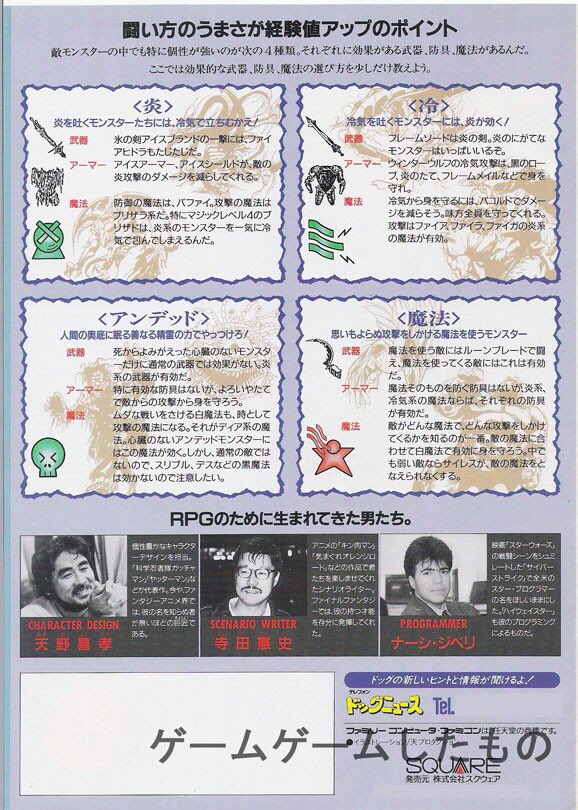 闘い方のうまさが経験値アップのポイント
敵モンスターの中でも特に個性が強いのが次の4種類。それぞれに効果がある武器、防具、魔法があるんだ。
ここでは効果的な武器、防具、魔法の選び方を少しだけ教えよう。
〈炎〉
炎を吐くモンスターたちには、冷気で立ちむかえ!
武器
氷の剣アイスブランドの一撃には、ファイ
アヒドラもたじたじだ。
アーマー
アイスアーマー、アイスシールドが、敵の
炎攻撃のダメージを減らしてくれる。
魔法
防御の魔法は、バファイ。攻撃の魔法は
ブリザラ系だ。特にマジックレベル4のブ
リザドは、炎系のモンスターを一気に冷
気で包んでしまえるんだ。
〈冷〉
冷気を吐くモンスターには、炎が効く!
武器
フレームソードは炎の剣。炎のにがてな
モンスターはいっぱいいるぞ。
アーマー
ウィンターウルフの冷気攻撃は、黒のロー
ブ、炎のたて、フレームメイルなどで身を
守れ。
魔法
冷気から身を守るには、バコルドでダメー
ジを減らそう。味方全員を守ってくれる。
攻撃はファイア、ファイラ、ファイガの炎系
の魔法が有効だ。
〈アンデッド〉
人間の奥底に眠る善なる精霊の力でやっつけろ!
武器
死からよみがえった心臓のないモンスタ
ーだけに通常の武器では効果がない。炎
系の武器が有効だ。
アーマー
特に有効な防具はないが、よろいやたて
で敵からの攻撃から身を守ろう。
魔法
ムダな戦いをさける白魔法も、時として
攻撃の魔法になる。それがディア系の魔
法。心臓のないアンデッドモンスターに
はこの魔法が効く。しかし、通常の敵では
ないので、スリプル、デスなどの黒魔法
は効かないので注意したい。
〈魔法〉
思いもよらぬ攻撃をしかける魔法を使うモンスター
武器
魔法を使う敵にはルーンブレードで闘
え、魔法を使ってくる敵にはこれは有効
だ。
アーマー
魔法そのものを防ぐ防具はないが、炎系、
冷気系の魔法ならば、それぞれの防具
が有効だ。
魔法
敵がどんな魔法で、どんな攻撃をしかけ
てくるかを知るのが一番。敵の魔法に合
わせて白魔法で有効に身を守ろう。中で
も弱い敵ならサイレスが、敵の魔法をと
なえられなくする。
RPGのために生まれてきた男たち。
個性豊かなキャラクター
デザインを担当。
「科学忍者隊ガッチャ
マン」「ヤッターマン」など
が代表作。今や、ファ
ンタジーアニメ界で
は、彼の名を知らぬ者
が無いほどの巨匠で
ある。
CHARACTER DESIGN
天野喜孝
アニメの「キン肉マン」
「気まぐれオレンジロ
ード」などの作品で君
たちを楽しませてくれ
たシナリオライター。
ファイナルファンタジー
では、彼の持つ才能
を存分に発揮してくれ
た。
SCENARIO WRITER
寺田憲史
映画「スターウォーズ」
の戦闘シーンをシュミ
レートした「サイバー
ストライク」で全米の
スター・プログラマー
の名をほしいままにし
た。「ハイウェイスター」
も彼のプログラミング
によるものだ。
PROGRAMMER
ナーシ・ジベリ
ドッグの新しいヒントと情報が聞けるよ!
テレフォン
ドッグニュース Tel.
ファミリー コンピュータ・ファミコンは任天堂の商標です。
●イラストレーション/天プロダクション
ゲームゲームしたもの
SQUARE
発売元 株式会社スクウェア